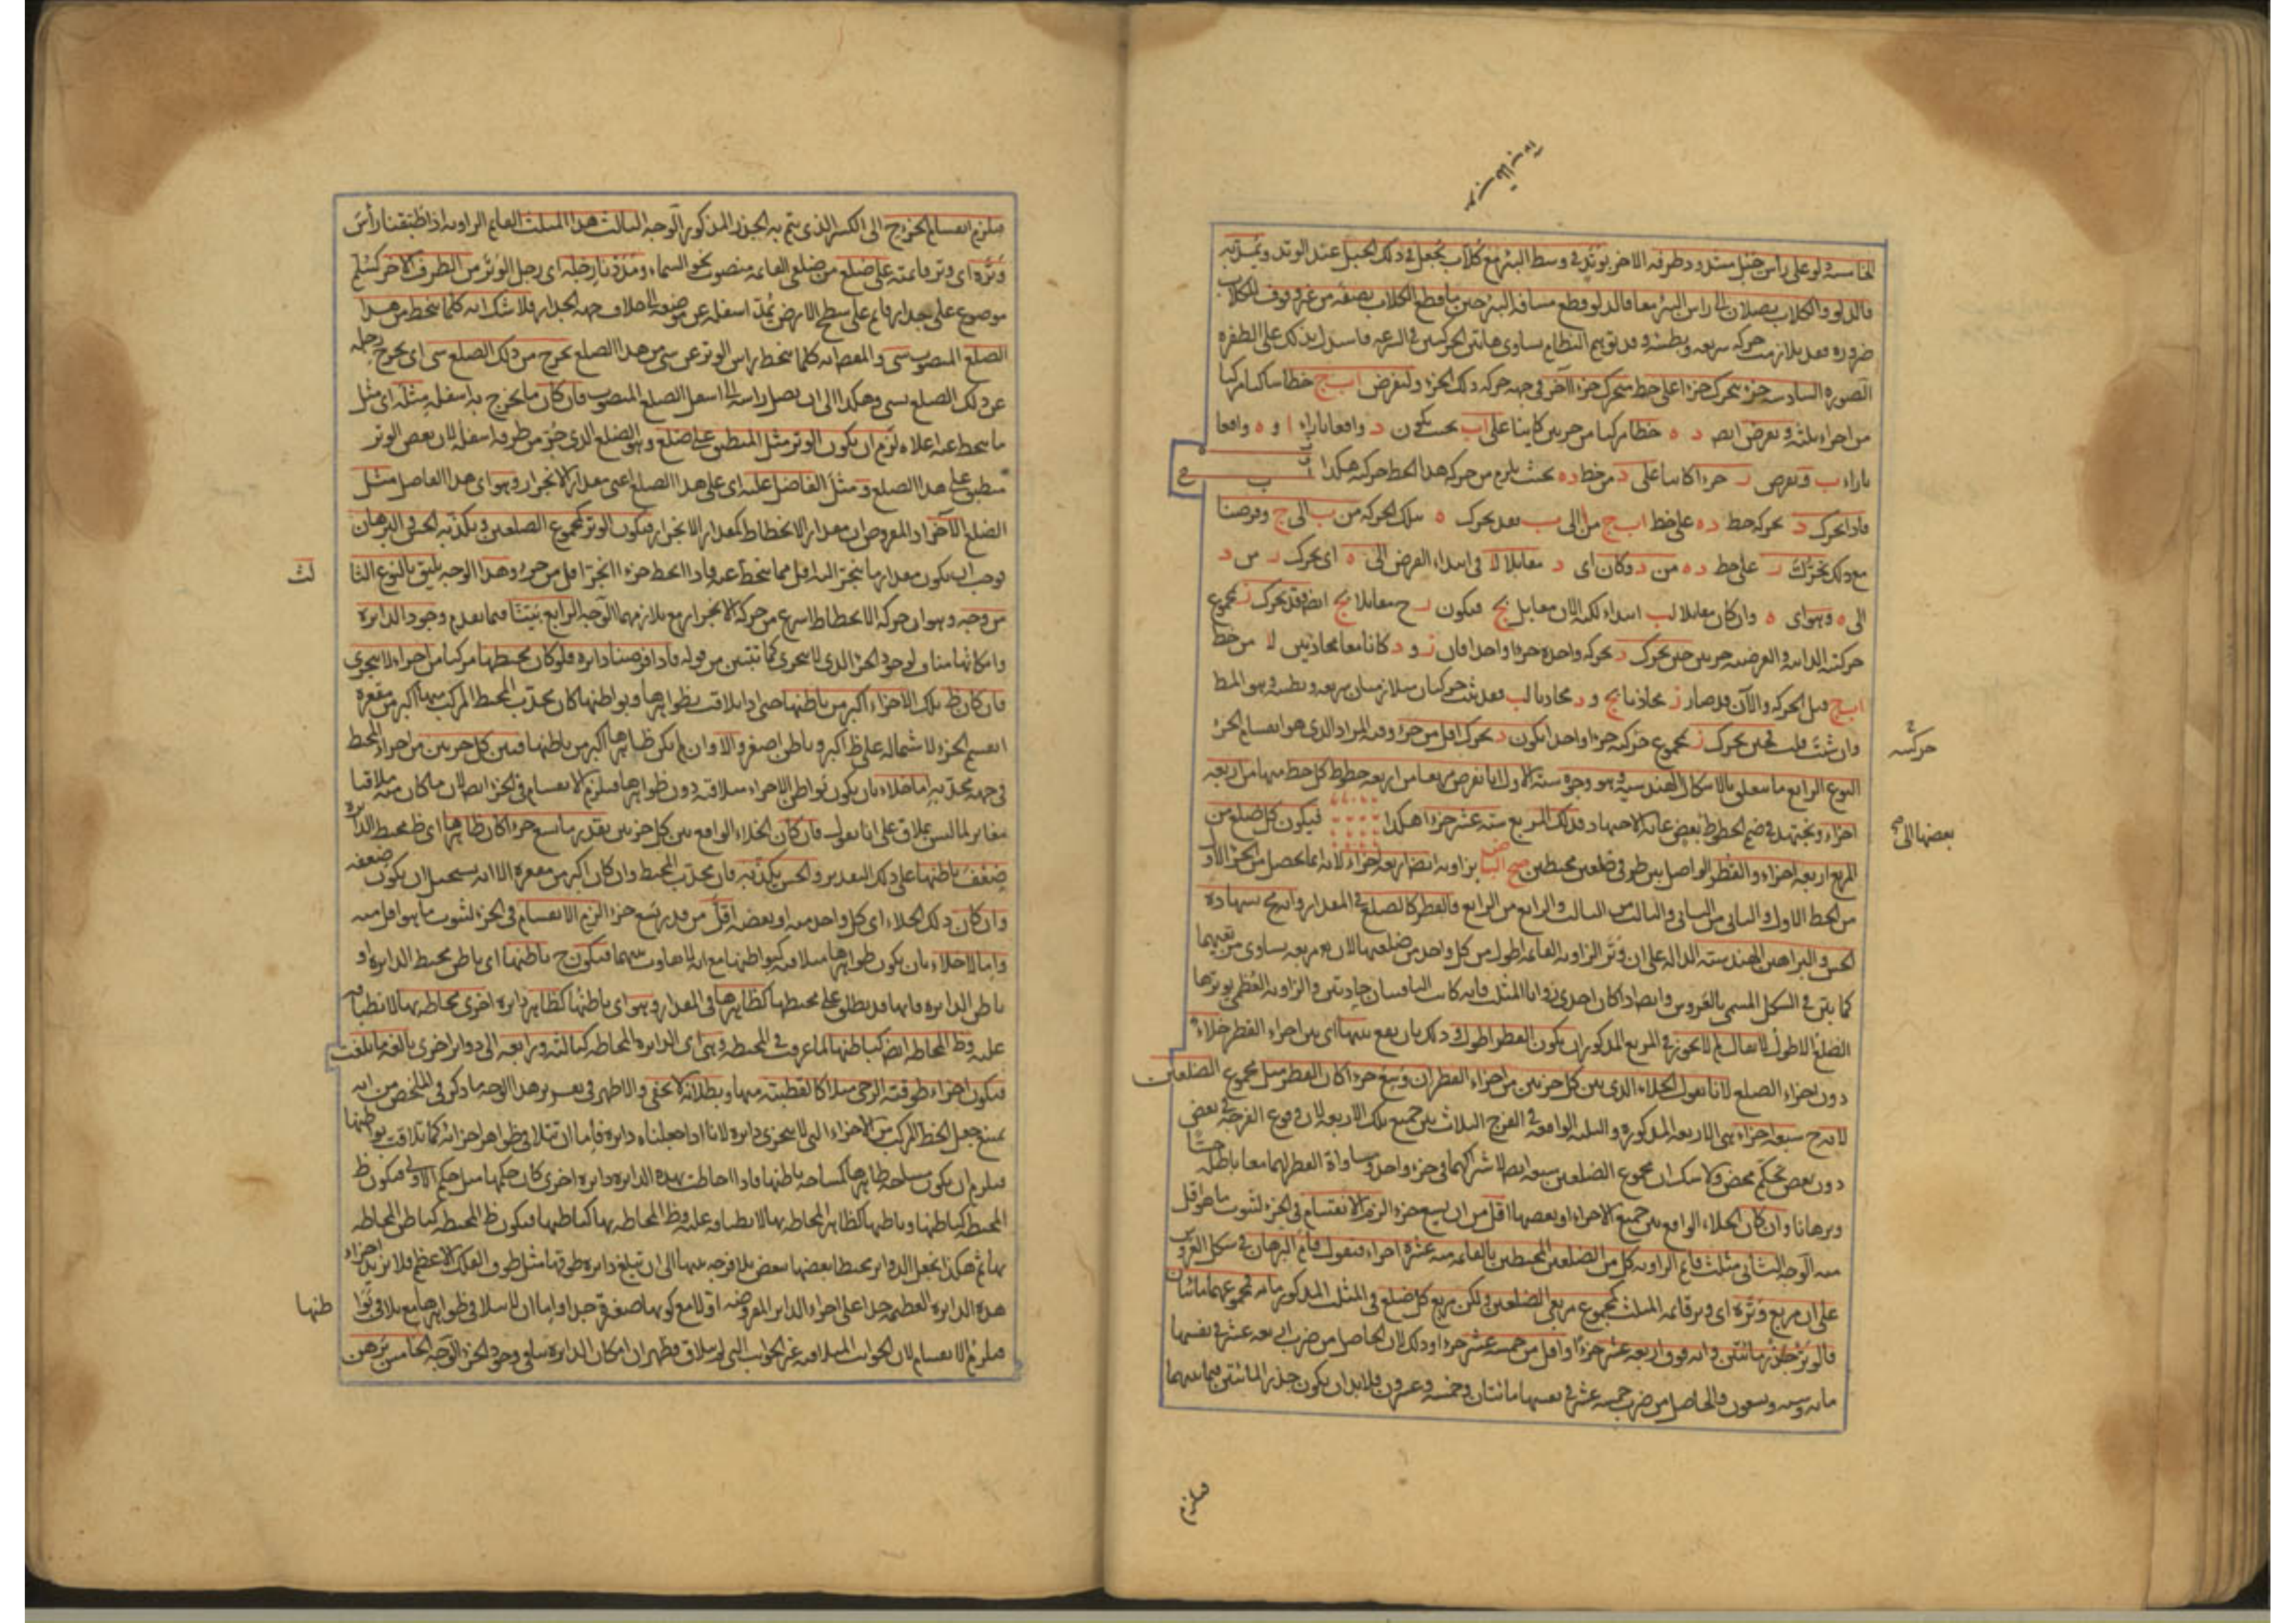 الخامسة دلو على رأس حبل مشدود طرفه الآخر بوتد في وسط البئر مع كلاب يجعل في ذلك الحبل عند الوتد ويمد به
فالدلو والكلاب يصلان الى رأس البئر معا فالدلو قطع مسافة البئر حين ما قطع الكلاب نصفه من غير وقوف للكلاب
ضرورة فقد تلازمت حركة سريعة وبطيئة وقد توهم النظام تساوى هاتين الحركتين في السرعة فاستدل بذلك على الطفرة
الصورة السادسة جزء يتحرك جزءا على خط يتحرك جزءا لآخر في جهة حركة ذلك الجزء ولنفرض اب ج خطا ساكنا مركبا
من اجزاء ثلثة ونفرض ايض د ه خطا مركبا من جزءين كاينا على اب بحيث يكون د واقعا بازاء ا و ه واقعا
بازاء ب ونفرض ر جزءا كاينا على د من خط ده بحيث يلزم من حركة هذا الخط حركته هكذا
فاذا تحرك د بحركة خط ده على خط اب ج من ا الى ب فقد تحرك ه بتلك الحركة من ب الى ج وفرضنا
مع ذلك تحرك ر على خط ده من د وكان اى د مقابلا لا في ابتداء الفرض الى ه اى تحرك ر من د
الى ه وهو اى ه وان كان مقابلا لب ابتداء لكنه الان مقابل لج فيكون ر ح مقابلا لج ايض فقد تحرك ر بمجموع
حركتيه الذاتية والعرضية جزءين حين تحرك د بحركة واحدة جزءا واحدا فان ر و د كانا معا محاذيين لا من خط
اب ج قبل الحركة والآن قد صار ر محاذيا لج و د محاذيا لب فقد ثبت حركتان متلازمتان سريعة وبطيئة وهو المط
وان شئت قلت فحين تحرك ر بمجموع حركتيه جزءا واحدا يكون د تحرك اقل من جزء وفيه المراد الذى هو انقسام الجزء
حركتيه
النوع الرابع ما يتعلق بالاشكال الهندسية وهو وجوه ستة الاول انا نفرض مربعا من اربعة خطوط كل خط منها من اربعة
اجزاء ونجتهد في ضم الخطوط بعض غاية الاجتهاد فذلك المربع ستة عشر جزءا هكذا فيكون كل ضلع من
بعضها الى صح
المربع اربعة اجزاء والقطر الواصل بين طرفى ضلعين محيطين بزاوية ايضا اربعة اجزاء لانه انما يحصل من الجزء الاول
من الخط الاول والثانى من الثانى والثالث من الثالث والرابع من الرابع فالقطر كالضلع في المقدار وانه مح بشهادة
الحس والبراهين الهندسية الدالة على ان وتر الزاوية القائمة اطول من كل واحد من ضلعيها لان مربعه يساوى مربعيهما
كما بين في الشكل المسمى بالعروس وايضا اذا كان احدى زوايا المثلث قائمة كانت الباقيتان حادتين والزاوية العظمى يوترها
الضلع الاطول لا يقال لم لا يجوز في المربع المذكور ان يكون القطر اطول وذلك بان يقع بينها اى بين اجزاء القطر خلاء
دون اجزاء الضلع لانا نقول الخلاء الذى بين كل جزءين من اجزاء القطر ان وسع جزءا كان القطر مثل مجموع الضلعين
لانه ح سبعة اجزاء هى الاربعة المذكورة والثلثة الواقعة في الفرج الثلاث بين جميع تلك الاربعة لان وقوع الفرجة في بعض
دون بعض تحكم محض ولا شك ان مجموع الضلعين سبعة ايضا لاشتراكهما في جزء واحد ومساواة القطر لهما معا باطلة حسا
وبرهانا وان كان الخلاء الواقع بين جميع الاجزاء او بعضها اقل من ان يسع جزءا لزم الانقسام في الجزء لثبوت ما هو اقل
منه الوجه الثانى مثلث قائم الزاوية كل من الضلعين المحيطين بالقائمة منه عشرة اجزاء فنقول قام البرهان في شكل العروس
على ان مربع وتره اى وتر قائمة المثلث كمجموع مربعى الضلعين ولكن مربع كل ضلع في المثلث المذكور مائة فمجموعهما مائتان
فالوتر جذر مائتين وانه فوق اربعة عشر جزءا واقل من خمسة عشر جزءا وذلك لان الحاصل من ضرب اربعة عشر في نفسها
مائة وستة وتسعون والحاصل من ضرب خمسة عشر في نفسها مائتان وخمسة وعشرون فلا بد ان يكون جذر المائتين فيما بينهما
فيلزم
فيلزم انقسام الجزء ح الى الكسر الذى يتم به الجذر المذكور الوجه الثالث هذا المثلث القائم الزاوية اذا طبقنا رأس
وتره اى وتر قائمته على ضلع من ضلعى القائمة منصوب نحو السماء ومددنا رجله اى رجل الوتر من الطرف الآخر كسلم
موضوع على جدار قائم على سطح الارض يمد اسفله عن موضعه الى خلاف جهة الجدار فلا شك انه كلما ينحط من هذا
الضلع المنصوب شى والمعنى انه كلما انحط راس الوتر عن شى من هذا الضلع يخرج من ذلك الضلع شى اى يخرج رجله
عن ذلك الضلع بشى وهكذا الى ان يصل راسه الى اسفل الضلع المنصوب فان كان ما يخرج به اسفله مثله اى مثل
ما ينحط عنه اعلاه لزم ان يكون الوتر مثل المنطبق عليه ضلع وهو الضلع الذى جر من طرفه اسفله لان بعض الوتر
منطبق على هذا الضلع ومثل الفاضل عليه اى على هذا الضلع اعنى مقدار الانجرار وهو اى هذا الفاضل مثل
الضلع الآخر اذ المفروض ان مقدار الانحطاط كمقدار الانجرار فيكون الوتر كمجموع الضلعين ويكذبه الحس والبرهان
فوجب ان يكون مقدار ما ينجر اليه اقل مما ينحط عنه فاذا انحط جزءا انجر اقل من جزء وهذا الوجه يليق بالنوع الثا
لث
من وجه وهو ان حركة الانحطاط اسرع من حركة الانجرار مع تلازمهما الوجه الرابع بيننا فيما تقدم وجود الدايرة
وامكانها مناف لوجود الجزء الذى لا يتجزى كما تبين من قوله فاذا فرضنا دايرة فلو كان محيطها مركبا من اجزاء لا تتجزى
فان كان ظ تلك الاجزاء اكبر من باطنها حتى اذا تلاقت بظواهرها وبواطنها كان محدب المحيط المركب منها اكبر من مقعره
انقسم الجزء لاشتماله على ظ اكبر وباطن اصغر والا وان لم يكن ظاهرها اكبر من باطنها فبين كل جزءين من اجزاء المحيط
في جهة محدبه اما خلاء بان يكون بواطن الاجزاء متلاقية دون ظواهرها فيلزم الانقسام في الجزء ايضا لان ما كان منه ملاقيا
مغاير لما ليس بملاق على انا نقول فان كان الخلاء الواقع بين كل جزءين بقدر ما يسع جزءا كان ظاهرها اى ظ محيط الدايرة
ضعف باطنها على ذلك التقدير والحس يكذبه فان محدب المحيط وان كان اكبر من مقعره الا انه يستحيل ان يكون ضعفه
وان كان ذلك الخلاء اى كل واحد منه او بعضه اقل من قدر يسع جزءا لزم الانقسام في الجزء لثبوت ما هو اقل منه
واما لا خلاء بان يكون ظواهرها متلاقية كبواطنها مع انه لا تفاوت بينهما فيكون ح باطنها اى باطن محيط الدايرة او
باطن الدايرة فانها قد يطلق على محيطها كظاهرها في المقدار وهو اى باطنها كظاهر دايرة اخرى محاطة بها لانطباقه
عليه وظ المحاطة ايض كباطنها لما عرفت في المحيطة وهى اى الدايرة المحاطة كثالثة ورابعة الى دواير اخرى بالغة ما بلغت
فيكون اجزاء طوقية الرحى مثلا كالقطبية منها وبطلانه لا يخفى والاظهر في تقرير هذا الوجه ما ذكر في الملخص من انه
يمتنع جعل الخط المركب من الاجزاء التى لا تتجزى دايرة لانا اذا جعلناه دايرة فاما ان تتلاقى ظواهر اجزائه كما تلاقت بواطنها
فيلزم ان يكون مساحة ظاهرها كمساحة باطنها فاذا احاطت بهذه الدايرة دايرة اخرى كان حكمها مثل حكم الاولى فيكون ظ
المحيطة كباطنها وباطنها كظاهر المحاطة بها لانطباقه عليه وظ المحاطة بها كباطنها فيكون ظ المحيطة كباطن المحاطة
بها ثم هكذا نجعل الدواير محيطا بعضها ببعض بلا فرجة بينها الى ان تبلغ دايرة طوقها مثل طوق الفلك الاعظم فلا يزيد اجزاء
هذه الدايرة العظيمة جدا على اجزاء الدايرة المفروضة اولا مع كونها صغيرة جدا واما ان لا يتلاقى ظواهرها مع تلاقى بوا
طنها
فيلزم الانقسام لان الجوانب المتلاقية غير الجوانب التى لم تتلاق فظهر ان امكان الدايرة ينافى وجود الجزء الوجه الخامس برهن